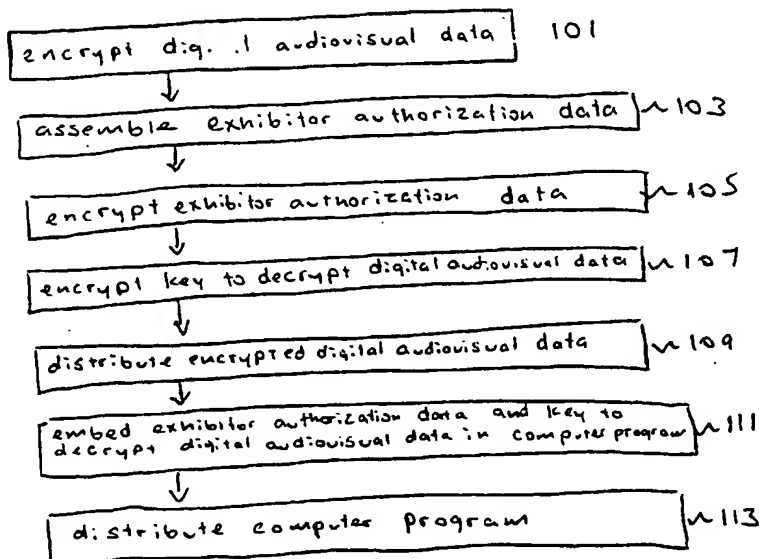 encrypt dig. .l audiovisual data 101
assemble exhibitor authorization data 103
encrypt exhibitor authorization data 105
encrypt key to decrypt digital audiovisual data 107
distribute encrypted digital audiovisual data 109
embed exhibitor authorization data and key to
decrypt digital audiovisual data in computer program 111
distribute computer program 113